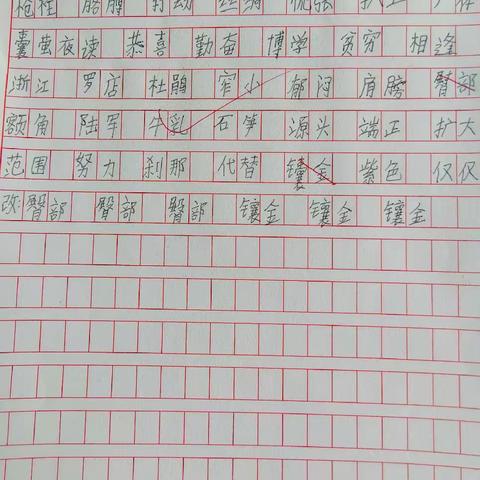 胳膊 打动
囊萤夜读 恭喜 勤奋 博学 贫穷 相逢
浙江 罗店 杜鹃 窄小 郁闷 肩膀 臀部
额角 陆军 牛乳 石笋 源头 端正 扩大
范围 努力 刹那 代替 镶金 紫色 仅仅
改:臀部 臀部 臀部 镶金 镶金 镶金